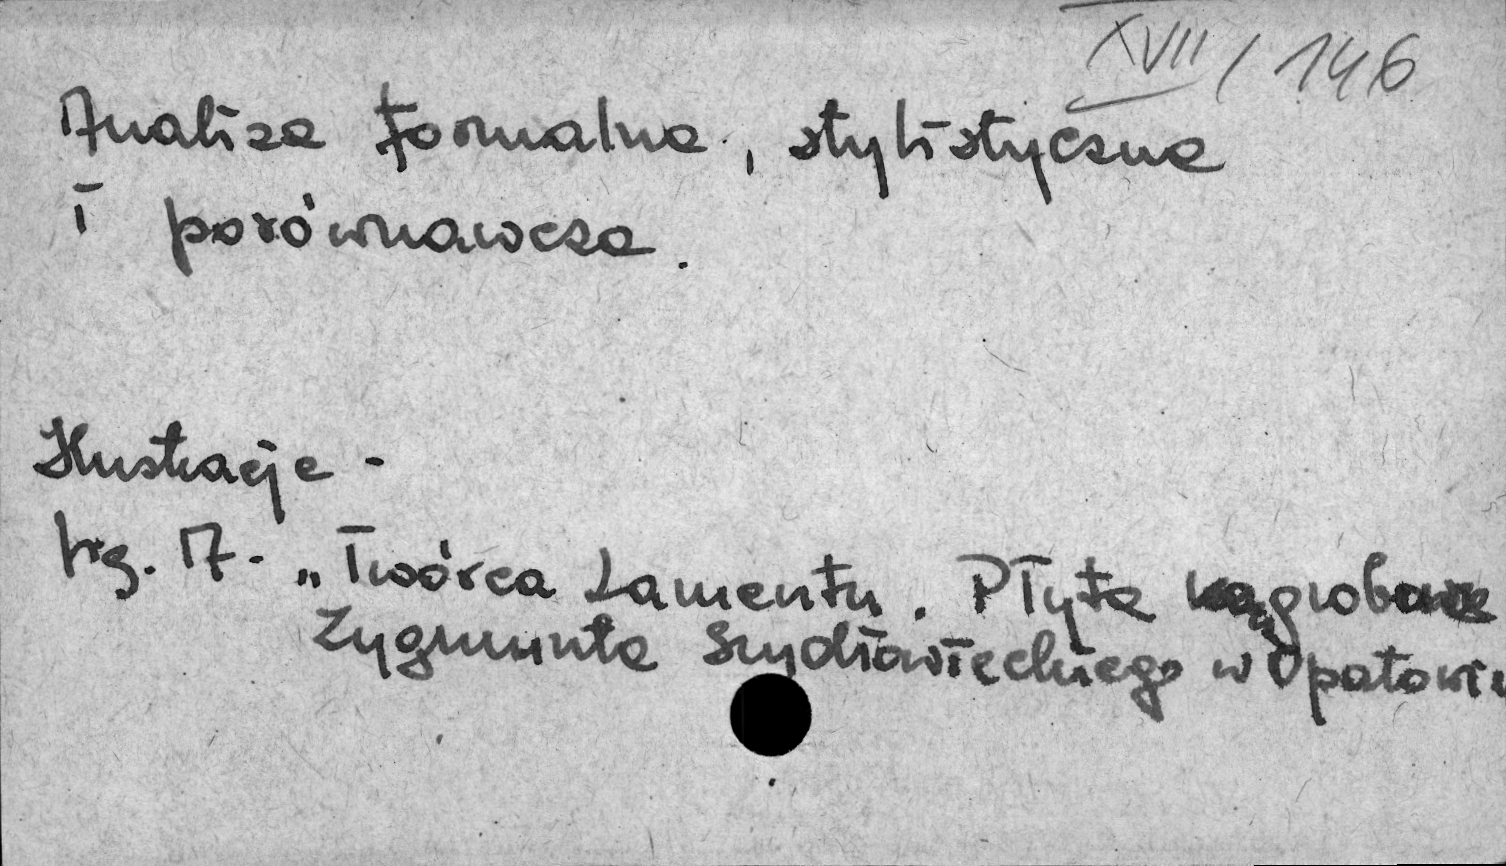 XVII / 146
Analiza formalna, stylistyczna
i porównawcza.
Ilustracje -
fig. 17. „Twórca Lamentu. Płyta nagrobowa
Zygmunta Szydłowieckiego w Opatowie